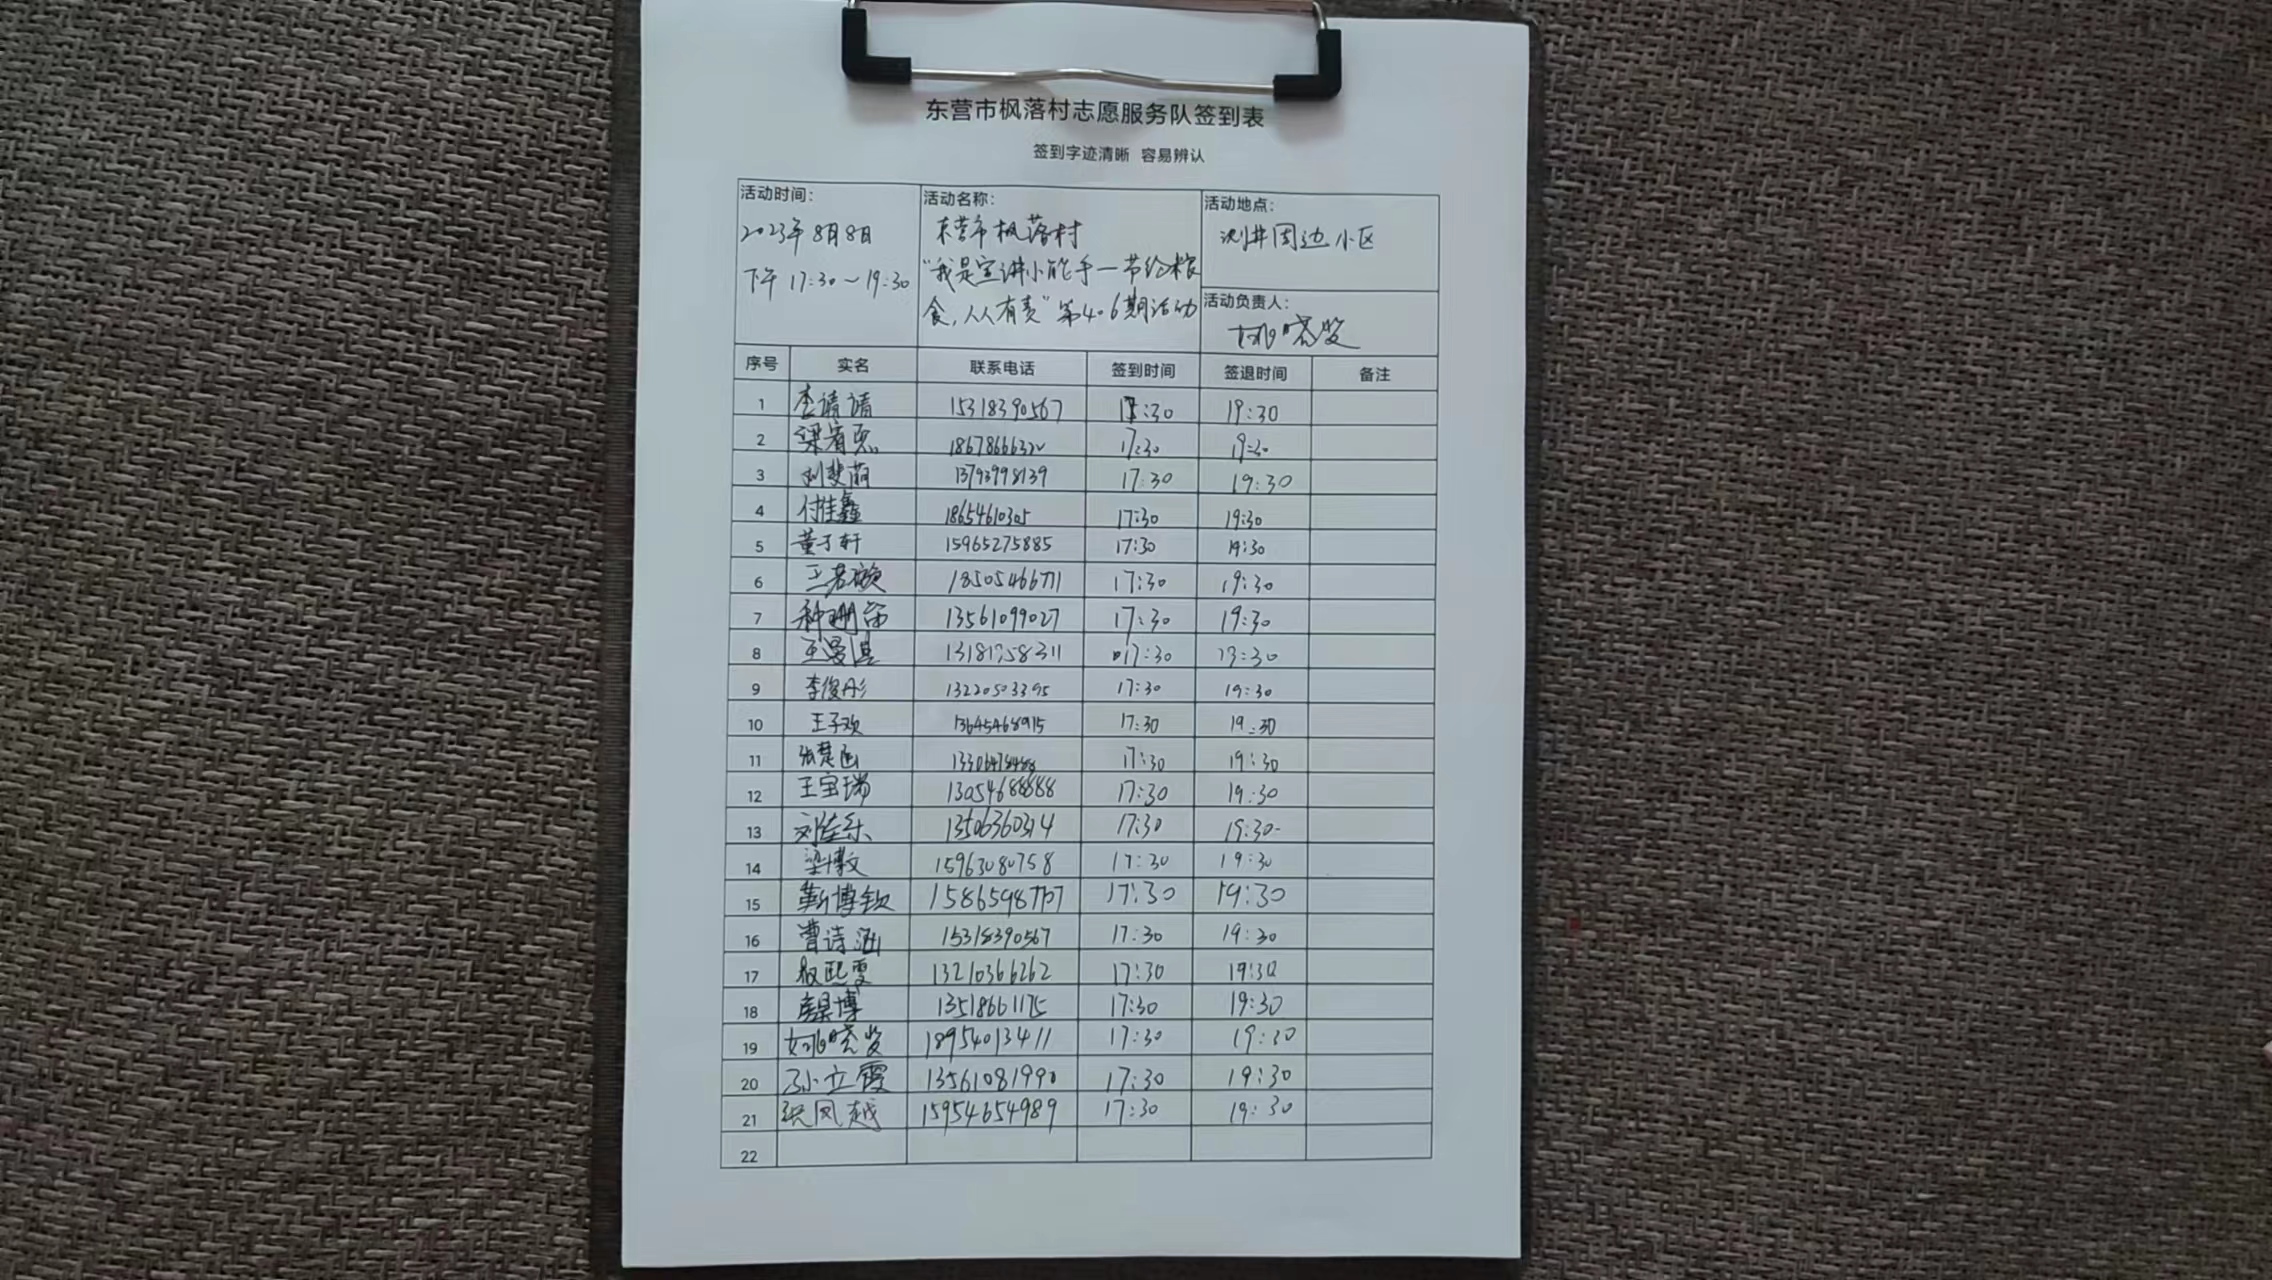 东营市枫落村志愿服务队签到表
签到字迹清晰 容易辨认
活动时间：
2023年8月8日
下午 17:30～19:30
活动名称：
东营市枫落村
“我是宣讲小能手—节约粮
食，人人有责”第406期活动
活动地点：
测井周边小区
活动负责人：
姚晓
序号 实名 联系电话 签到时间 签退时间 备注
1 李请请 15318390567 17:30 19:30
2 18678666320 17:30 19:30
3 刘斐萌 13793998139 17:30 19:30
4 付佳鑫 18654610305 17:30 19:30
5 董子轩 15965275885 17:30 19:30
6 王若颜 18505466771 17:30 19:30
7 种珊 13561099027 17:30 19:30
8 王曼淇 13181958311 17:30 19:30
9 李俊彤 13220503395 17:30 19:30
10 王子欢 13645468915 17:30 19:30
11 张楚函 17:30 19:30
12 王宝瑞 13054688888 17:30 19:30
13 刘佳乐 13506360314 17:30 19:30
14 梁博文 15963080758 17:30 19:30
15 靳博钦 15865987707 17:30 19:30
16 曹诗涵 15318390567 17:30 19:30
17 熙雯 13210366262 17:30 19:30
18 博 13518661175 17:30 19:30
19 姚晓 18954013411 17:30 19:30
20 孙立霞 13561081990 17:30 19:30
21 张风越 15954654989 17:30 19:30
22